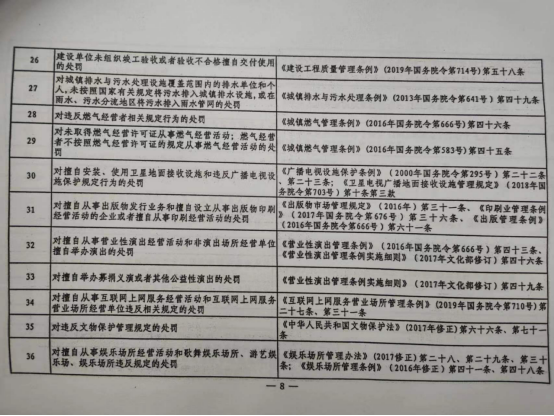 26
建设单位未组织竣工验收或者验收不合格擅自交付使用
的处罚
《建设工程质量管理条例》（2019年国务院令第714号）第五十八条
27
对城镇排水与污水处理设施覆盖范围内的排水单位和个
人，未按照国家有关规定将污水排入城镇排水设施，或在
雨水、污水分流地区将污水排入雨水管网的处罚
《城镇排水与污水处理条例》（2013年国务院令第641号）第四十九条
28
对违反燃气经营者相关规定行为的处罚
《城镇燃气管理条例》（2016年国务院令第666号）第四十六条
29
对未取得燃气经营许可证从事燃气经营活动；燃气经营
者不按照燃气经营许可证的规定从事燃气经营活动的处
罚
《城镇燃气管理条例》（2016年国务院令第583号）第四十五条
30
对擅自安装、使用卫星地面接收设施和违反广播电视设
施保护规定行为的处罚
《广播电视设施保护条例》（2000年国务院令第295号）第二十二条
、第二十三条；《卫星电视广播地面接收设施管理规定》（2018年国
务院令第703号）第十条第三款
31
对擅自从事出版物发行业务和擅自设立从事出版物印刷
经营活动的企业或者擅自从事印刷经营活动的处罚
《出版物市场管理规定》（2016年）第三十一条、《印刷业管理条例
》（2017年国务院令第676号）第三十六条、《出版管理条例》
（2016年国务院令第666号）第六十一条
32
对擅自从事营业性演出经营活动和动演出场所经营单位
擅自举办演出的处罚
《营业性演出管理条例》（2016年国务院令第666号）第四十三条、
《营业性演出管理条例实施细则》（2017年文化部修订）第四十六条
33
对擅自举办募捐义演或者其他公益性演出的处罚
《营业性演出管理条例实施细则》（2017年文化部修订）第四十九条
34
对擅自从事互联网上网服务经营活动和互联网上网服务
营业场所经营单位违反相关规定的处罚
《互联网上网服务营业场所管理条例》（2019年国务院令第710号）第
二十七条、第三十一条
35
对违反文物保护管理规定的处罚
《中华人民共和国文物保护法》（2017年修正）第六十六条、第七十一
条
36
对擅自从事娱乐场所经营活动和歌舞娱乐场所、游艺娱
乐场、娱乐场所违反规定的处罚
《娱乐场所管理办法》（2017修正）第二十八条、第二十九条、第三十
条；《娱乐场所管理条例》（2016年修正）第四十一条、第四十八条
— 8 —